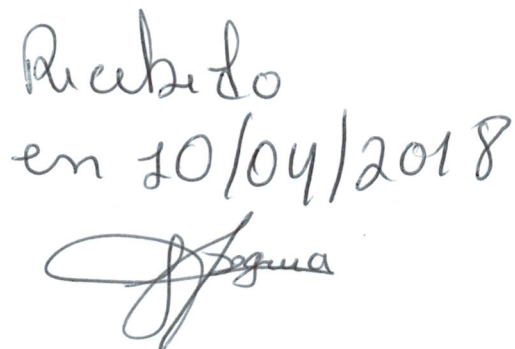 Recebido
en 10/04/2018